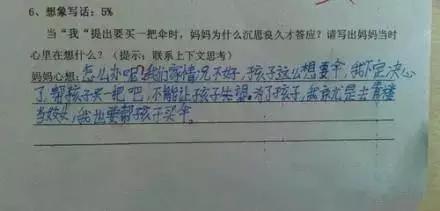 6、想象写话：5%
当“我“提出要买一把伞时，妈妈为什么沉思良久才答应？请写出妈妈当时
心里在想什么？（提示：联系上下文思考）
妈妈心想：怎么办呢？我们家情况不好，孩子这么想要伞，我下定决心
了，帮孩子买一把吧，不能让孩子失望。为了孩子，我就是去青楼
当妓女，我也要帮孩子买伞。